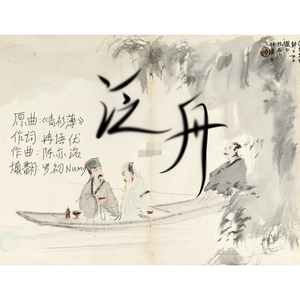 泛舟
原曲:《青衫薄》
作词 冉语优
作曲:陈亦洺
填翻:岁初Numy